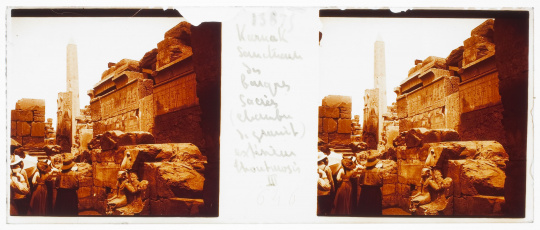 Karnak
Sanctuaire
des
Barques
Sacrées
(chambre
de granit)
extérieur
Thoutmosis
III